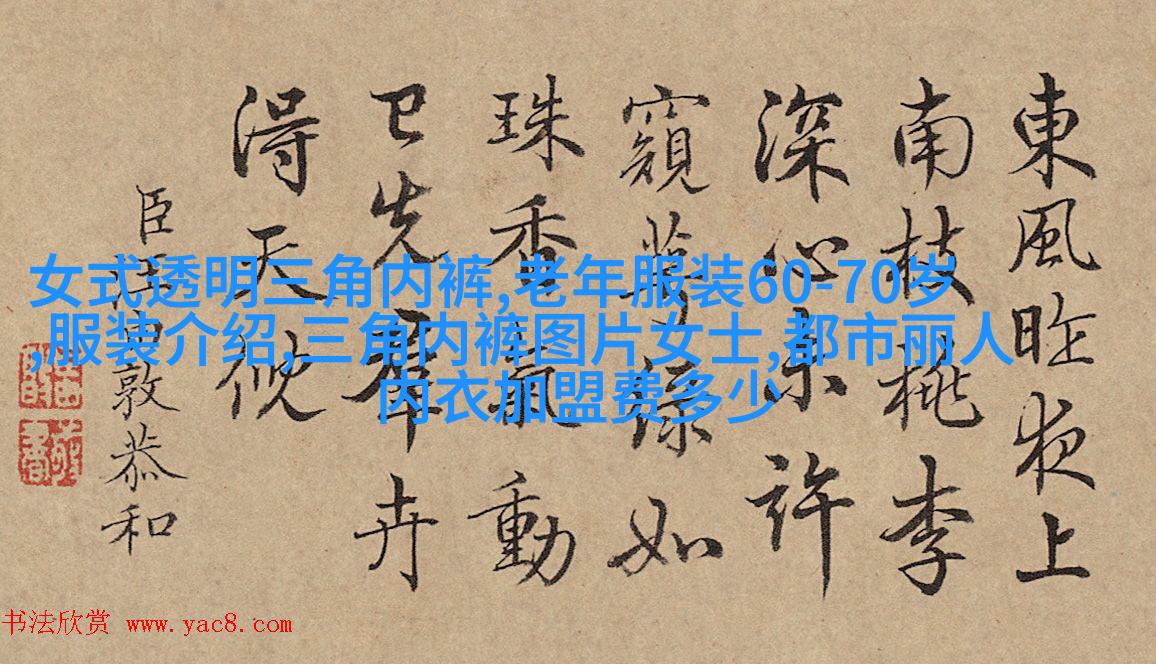 東風昨夜上
南枝桃李
深心未許
窺萼綠如
珠香氣動
已先羣卉
得天
臣汪由敦恭和
女式透明三角内裤,老年服装60-70岁
,服装介绍,三角内裤图片女士,都市丽人
内衣加盟费多少
书法欣赏 www.yac8.com